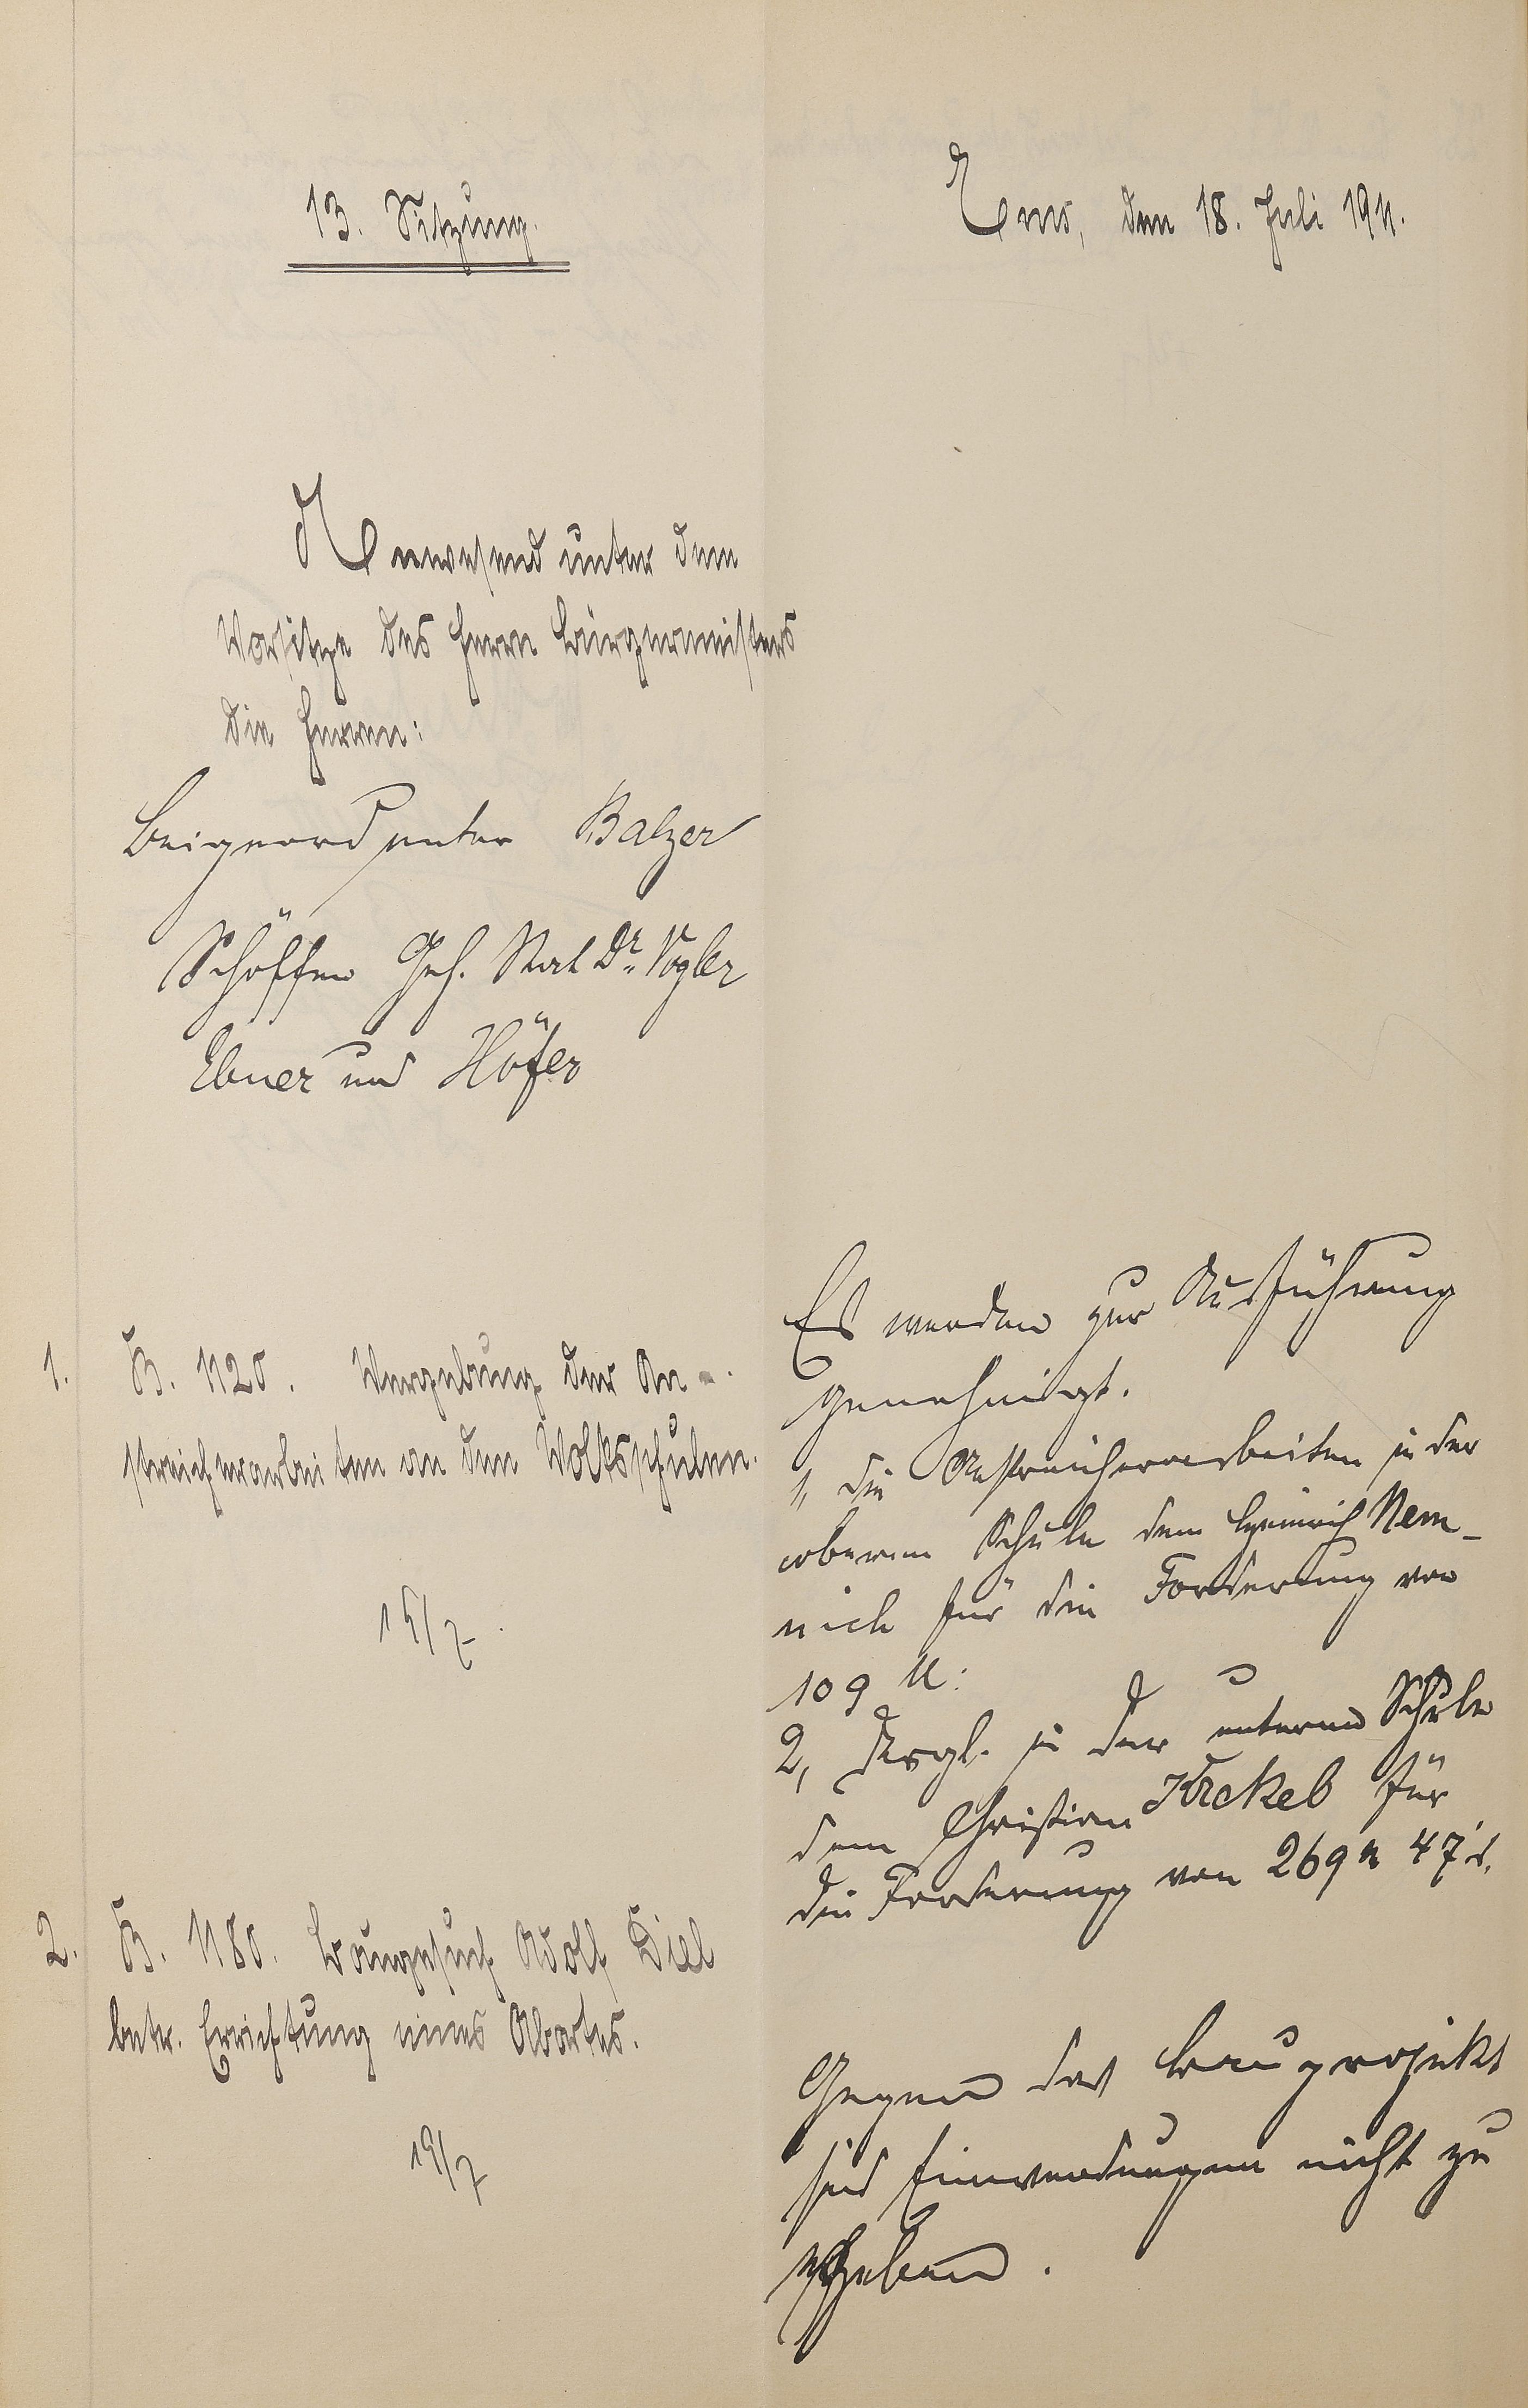 13. Sitzung.
Ems, den 18. Juli 1911.
Anwesend unter dem
Vorsitze des Herrn Bürgermeisters
die Herren:
Beigeordneter Balzer
Schöffen Geh. Rat Dr. Vogler
Ebner und Höfer
1. B. 1120. Vergebung der An-
streicherarbeiten an den Volksschulen.
19/7.
Es werden zur Ausführung
genehmigt.
1, die Anstreicherarbeiten in der
oberen Schule dem Heinrich Nem-
nich für die Forderung von
109 M:
2, desgl. in der unteren Schule
dem Christian Krekel für
die Forderung von 269 M 47 d.
2. B. 1180. Baugesuch Adolf Diel
betr. Errichtung eines Abortes.
19/7
Gegen das Bauprojekt
sind Einwendungen nicht zu
erheben.